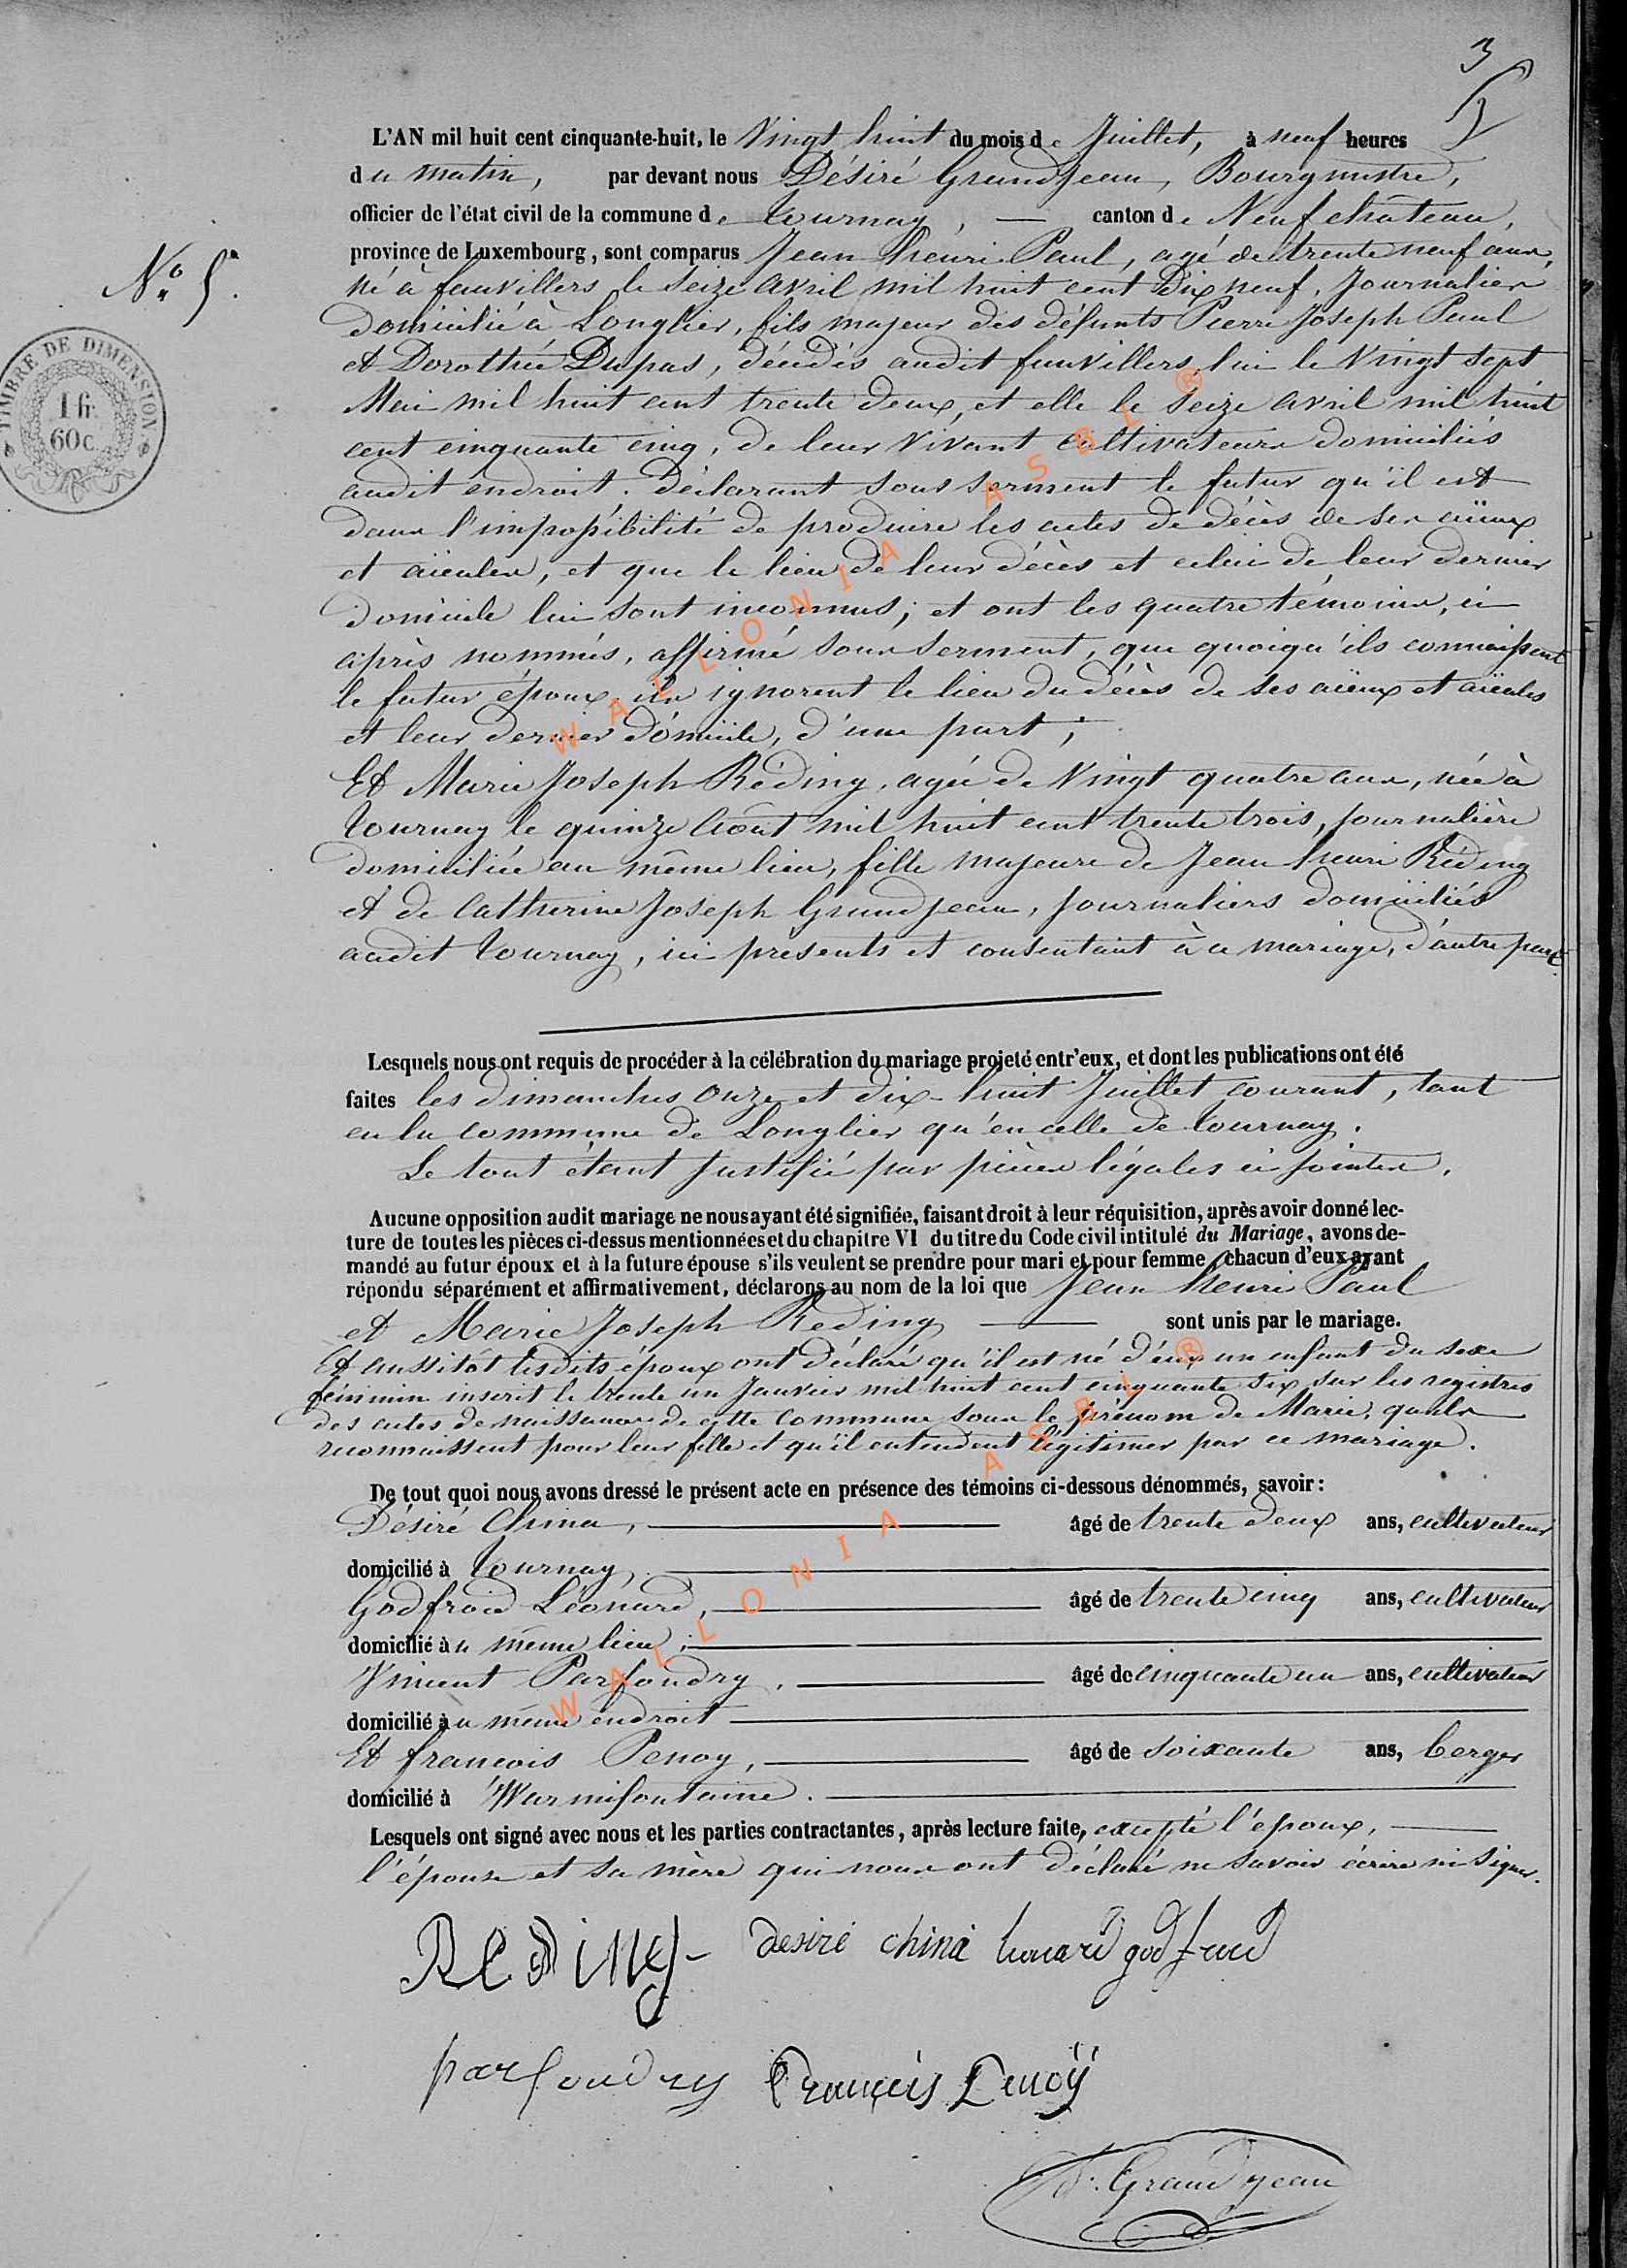 3
5
L'AN mil huit cent cinquante-huit, le Vingt huit du mois de Juillet, à neuf heures
du matin, par devant nous Désiré Grandjean, Bourgmestre,
officier de l'état civil de la commune de Tournay, — canton de Neufchâteau,
province de Luxembourg, sont comparus Jean henri Paul, agé de trente neuf ans,
N° 5.
né à fauvillers le seize avril mil huit cent dix neuf, Journalier
domicilié à Longlier, fils majeur des défunts Pierre Joseph Paul
TIMBRE DE DIMENSION
1 fr.
60c.
et Dorothée Dupas, décédés audit fauvillers, lui le Vingt sept
Mai mil huit cent trente deux, et elle le seize avril mil huit
cent cinquante cinq, de leur vivant cultivateurs domiciliés
audit endroit. déclarant sous serment le futur qu'il est
dans l'impossibilité de produire les actes de décès de ses aïeux
et aïeules, et que le lieu de leur décès et celui de leur dernier
domicile lui sont inconnus; et ont les quatre témoins, ci
après nommés, affirmé sous serment, que quoiqu'ils connaissent
le futur époux, ils ignorent le lieu du décès de ses aïeux et aïeules
et leur dernier domicile, d'une part;
Et Marie Joseph Réding, agée de Vingt quatre ans, née à
Tournay le quinze Août mil huit cent trente trois, journalière
domiciliée au même lieu, fille majeure de Jean henri Réding
et de Catherine Joseph Grandjean, Journaliers domiciliés
audit Tournay, ici présents et consentant à ce mariage, d'autre part
Lesquels nous ont requis de procéder à la célébration du mariage projeté entr'eux, et dont les publications ont été
faites les dimanches onze et dix-huit Juillet courant, tant
en la commune de Longlier qu'en celle de Tournay.
Le tout étant justifié par pièces légales ci jointes.
Aucune opposition audit mariage ne nous ayant été signifiée, faisant droit à leur réquisition, après avoir donné lec-
ture de toutes les pièces ci-dessus mentionnées et du chapitre VI du titre du Code civil intitulé du Mariage, avons de-
mandé au futur époux et à la future épouse s'ils veulent se prendre pour mari et pour femme, chacun d'eux ayant
répondu séparément et affirmativement, déclarons au nom de la loi que Jean henri Paul
et Marie Joseph Reding — sont unis par le mariage.
Et aussitôt lesdits époux ont déclaré qu'il est né d'eux un enfant du sexe
féminin inscrit le trente un Janvier mil huit cent cinquante six sur les registres
des actes de naissance de cette commune sous le prénom de Marie, qu'ils
reconnaissent pour leur fille et qu'il entendent légitimer par ce mariage.
De tout quoi nous avons dressé le présent acte en présence des témoins ci-dessous dénommés, savoir:
Désiré China, — âgé de trente deux ans, cultivateur
domicilié à Tournay, —
Godfroid Léonard, — âgé de trente cinq ans, cultivateur
domicilié au même lieu; —
Vincent Parfondry, — âgé de cinquante un ans, cultivateur
domicilié au même endroit —
Et francois Penoy, — âgé de soixante ans, berger
domicilié à Warmifontaine. —
Lesquels ont signé avec nous et les parties contractantes, après lecture faite, excepté l'époux, —
l'épouse et sa mère qui nous ont déclaré ne savoir écrire ni signer.
REDING desiré china leonard godfroid
parfondry François Penoÿ
D. Grandjean
WALLONIA ASBL ®
WALLONIA ASBL ®